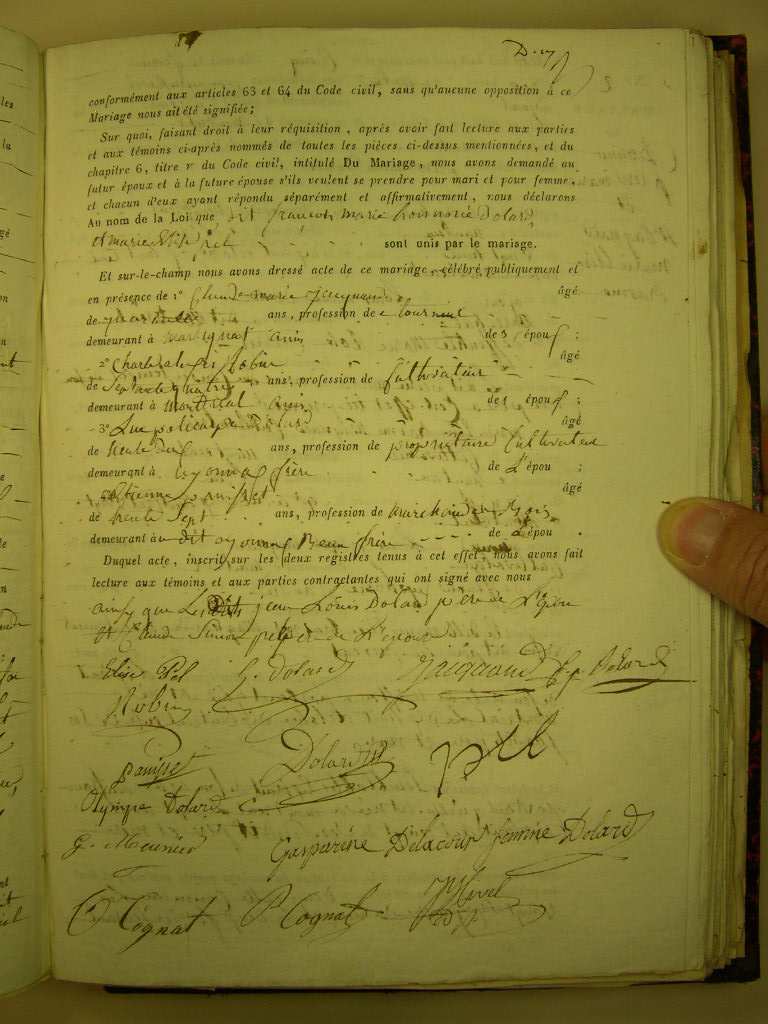 conformément aux articles 63 et 64 du Code civil, sans qu'aucune opposition à ce
Mariage nous ait été signifiée;
Sur quoi, faisant droit à leur réquisition, après avoir fait lecture aux parties
et aux témoins ci-après nommés de toutes les pièces ci-dessus mentionnées, et du
chapitre 6, titre v du Code civil, intitulé Du Mariage, nous avons demandé au
futur époux et à la future épouse s'ils veulent se prendre pour mari et pour femme,
et chacun d'eux ayant répondu séparément et affirmativement, nous déclarons
Au nom de la Loi que dit françois marie Dolard
et marie Elise pel sont unis par le mariage.
Et sur-le-champ nous avons dressé acte de ce mariage, célébré publiquement et
en présence de 1° Claude marie Jacquand âgé
de ans, profession de
demeurant à martignat amis des épou :
2° Robin âgé
de Septante quatre ans, profession de Cultivateur
demeurant à montréal amis des épou ;
3° Dolard âgé
de trente ans, profession de propriétaire Cultivateur
demeurant à oyonnax frère de L'épou ;
4° Etienne âgé
de trente Sept ans, profession de marchand
demeurant à dit oyonnax Beau frère de L'épou .
Duquel acte, inscrit sur les deux registres tenus à cet effet, nous avons fait
lecture aux témoins et aux parties contractantes qui ont signé avec nous
ainsi que Les jean Louis Dolard père de L'époux
et Claude Simon pel père de
Elise Pel G. Dolard Jacquand Dolard
Robin
Dolard Pel
Olympe Dolard
G. Meunier Gasparine Delacour femme Dolard
C. Cognat P. Cognat